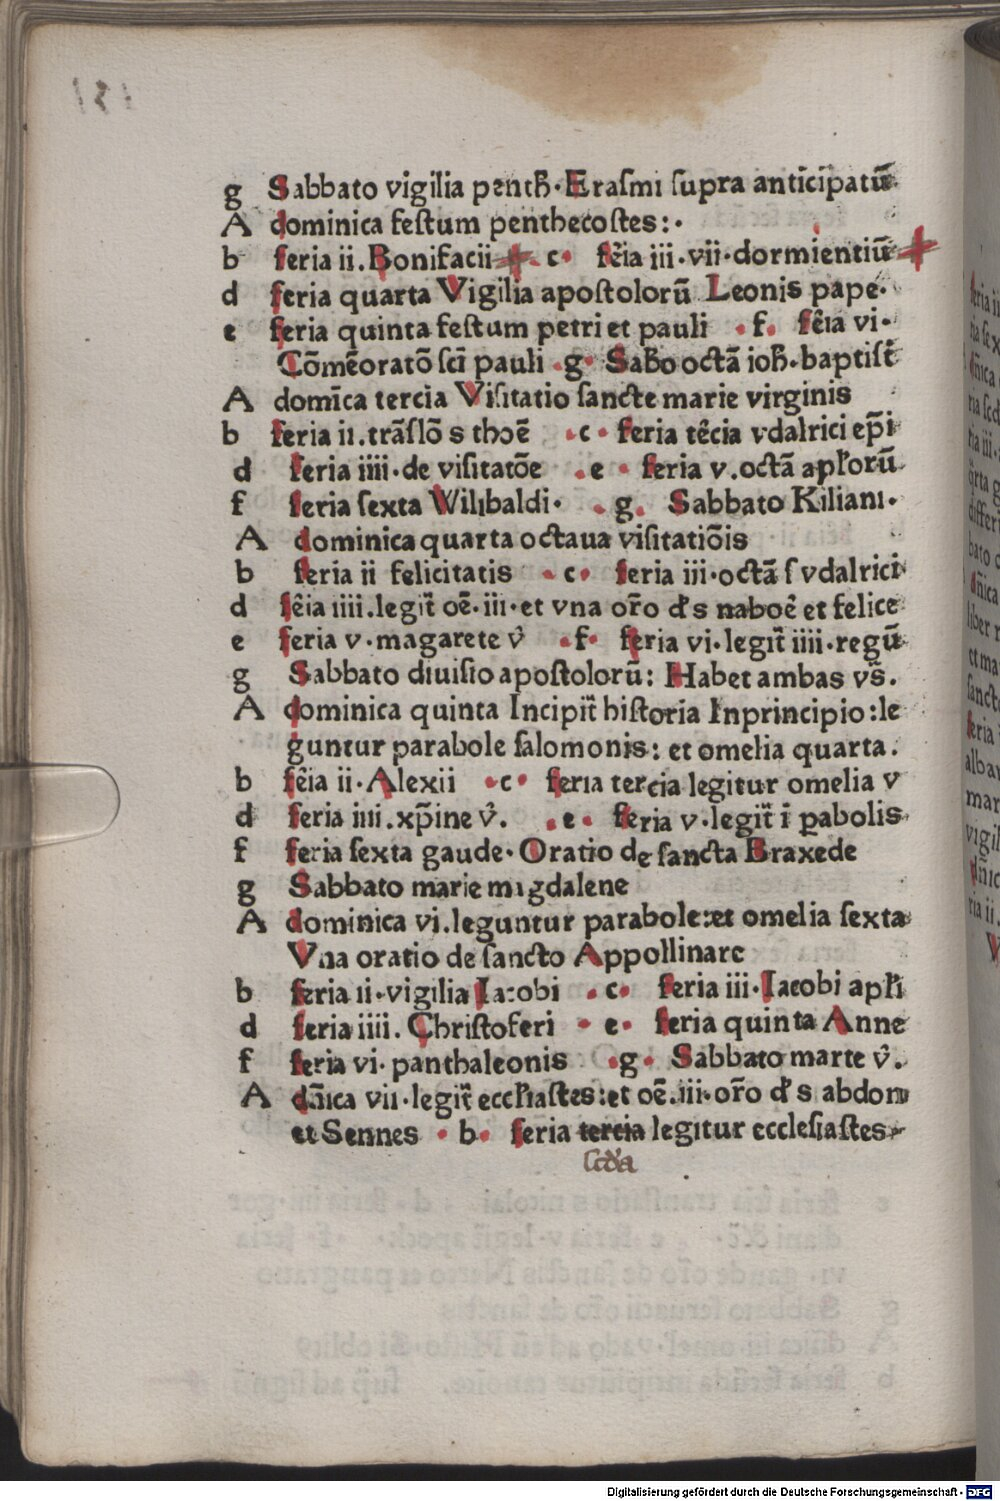 g Sabbato vigilia penth̄·Erasmi supra anticipatū·
A dominica festum penthecostes:·
b feria ii.Bonifacii · c· fēia iii·vii·dormientiū
d feria quarta Vigilia apostolorū Leonis pape·
e feria quinta festum petri et pauli ·f· fēia vi·
Cōmēoratō sci pauli ·g· Sabo octā ioh̄·baptist̄
A domīca tercia Visitatio sancte marie virginis
b feria ii.trāslō s thoē ·c· feria tēcia vdalrici ep̄i
d feria iiii·de visitatōe ·e· feria v.octā apl'orū
f feria sexta Wilibaldi· ·g. Sabbato Kiliani·
A dominica quarta octaua visitatiōis
b feria ii felicitatis ·c· feria iii·octā s vdalrici
d fēia iiii.legit̄ oē·iii·et vna or̄o d's naboē et felice
e feria v·magarete v̄ ·f· feria vi·legit̄ iiii·regū
g Sabbato diuisio apostolorū: Habet ambas vs̄.
A dominica quinta Incipit̄ historia Inprincipio:le
guntur parabole salomonis: et omelia quarta.
b fēia ii·Alexii ·c· feria tercia legitur omelia v
d feria iiii.xp̄ine v̄. ·e· feria v·legit̄ ī ꝑabolis
f feria sexta gaude·Oratio de sancta Braxede
g Sabbato marie magdalene
A dominica vi.leguntur parabole:et omelia sexta
Vna oratio de sancto Appollinare
b feria ii·vigilia Iacobi ·c· feria iii·Iacobi apl'i
d feria iiii. Christoferi · e· feria quinta Anne
f feria vi·panthaleonis ·g· Sabbato marte v̄.
A dn̄ica vii·legit̄ eccl'iastes:et oē.iii·or̄o d's abdon
et Sennes ·b· feria tercia legitur ecclesiastes·
scd'a
Digitalisierung gefördert durch die Deutsche Forschungsgemeinschaft - DFG